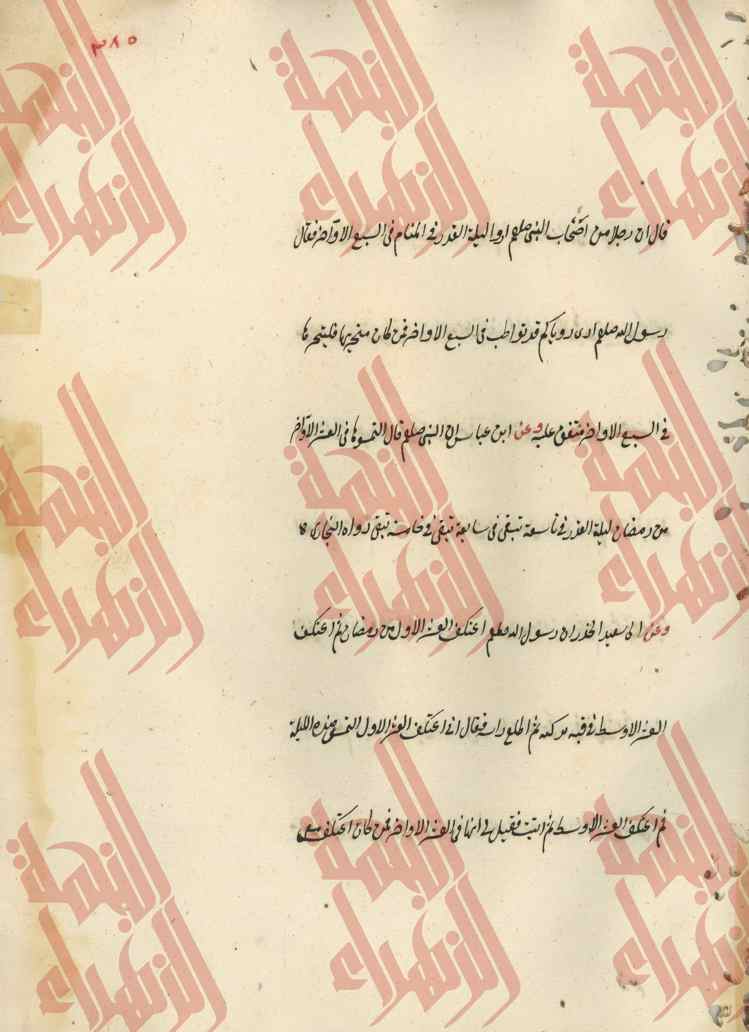 ٣٨٥
قال ان رجلا من اصحاب النبي صلعم اروا ليلة القدر في المنام في السبع الاواخر فقال
رسول الله صلعم ارى روياكم قد تواطت في السبع الاواخر فمن كان متحريها فليتحرها
في السبع الاواخر متفق عليه وعن ابن عباس ان النبي صلعم قال التمسوها في العشر الاواخر
من رمضان ليلة القدر في تاسعة تبقى في سابعة تبقى في خامسة تبقى رواه البخاري
وعن ابي سعيد الخدر ان رسول الله صلعم اعتكف العشر الاول من رمضان ثم اعتكف
العشر الاوسط في قبة تركية ثم اطلع راسه فقال اني اعتكف العشر الاول التمس هذه الليلة
ثم اعتكف العشر الاوسط ثم اتيت فقيل لي انها في العشر الاواخر فمن كان اعتكف معي